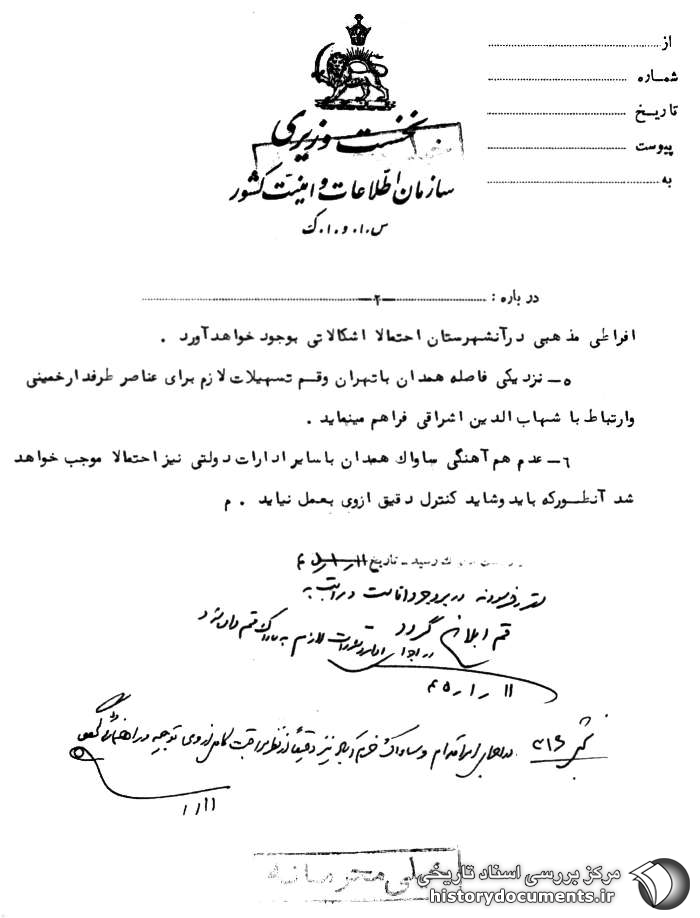 از
شماره
تاریخ
پیوست
به
نخست وزیری
سازمان اطلاعات و امنیت کشور
س.ا.و.ا.ک
درباره : ــ۲ــ
افراطی مذهبی درآنشهرستان احتمالا اشکالاتی بوجود خواهدآورد .
۵ــ نزدیکی فاصله همدان باتهران وقم تسهیلات لازم برای عناصر طرفدارخمینی
وارتباط با شهاب الدین اشراقی فراهم مینماید .
٦ــ عدم هم آهنگی ساواک همدان باسایر ادارات دولتی نیز احتمالا موجب خواهد
شد آنطورکه باید وشاید کنترل دقیق ازوی بعمل نیاید . م
رسید ــ تاریخ
مقرر فرمودند در بروجرد اقامت و مراتب به
قم ابلاغ گردد
لازم به ساواک قم داده شود
۱۱ ر ۱ ر ۴۵
۳۱۶ اقدام و ساواک خرم آباد نیز دقیقاً کامل از وی توجیه و راهنمائی
۱۱ر۱
خیلی محرمانه
مرکز بررسی اسناد تاریخی
historydocuments.ir